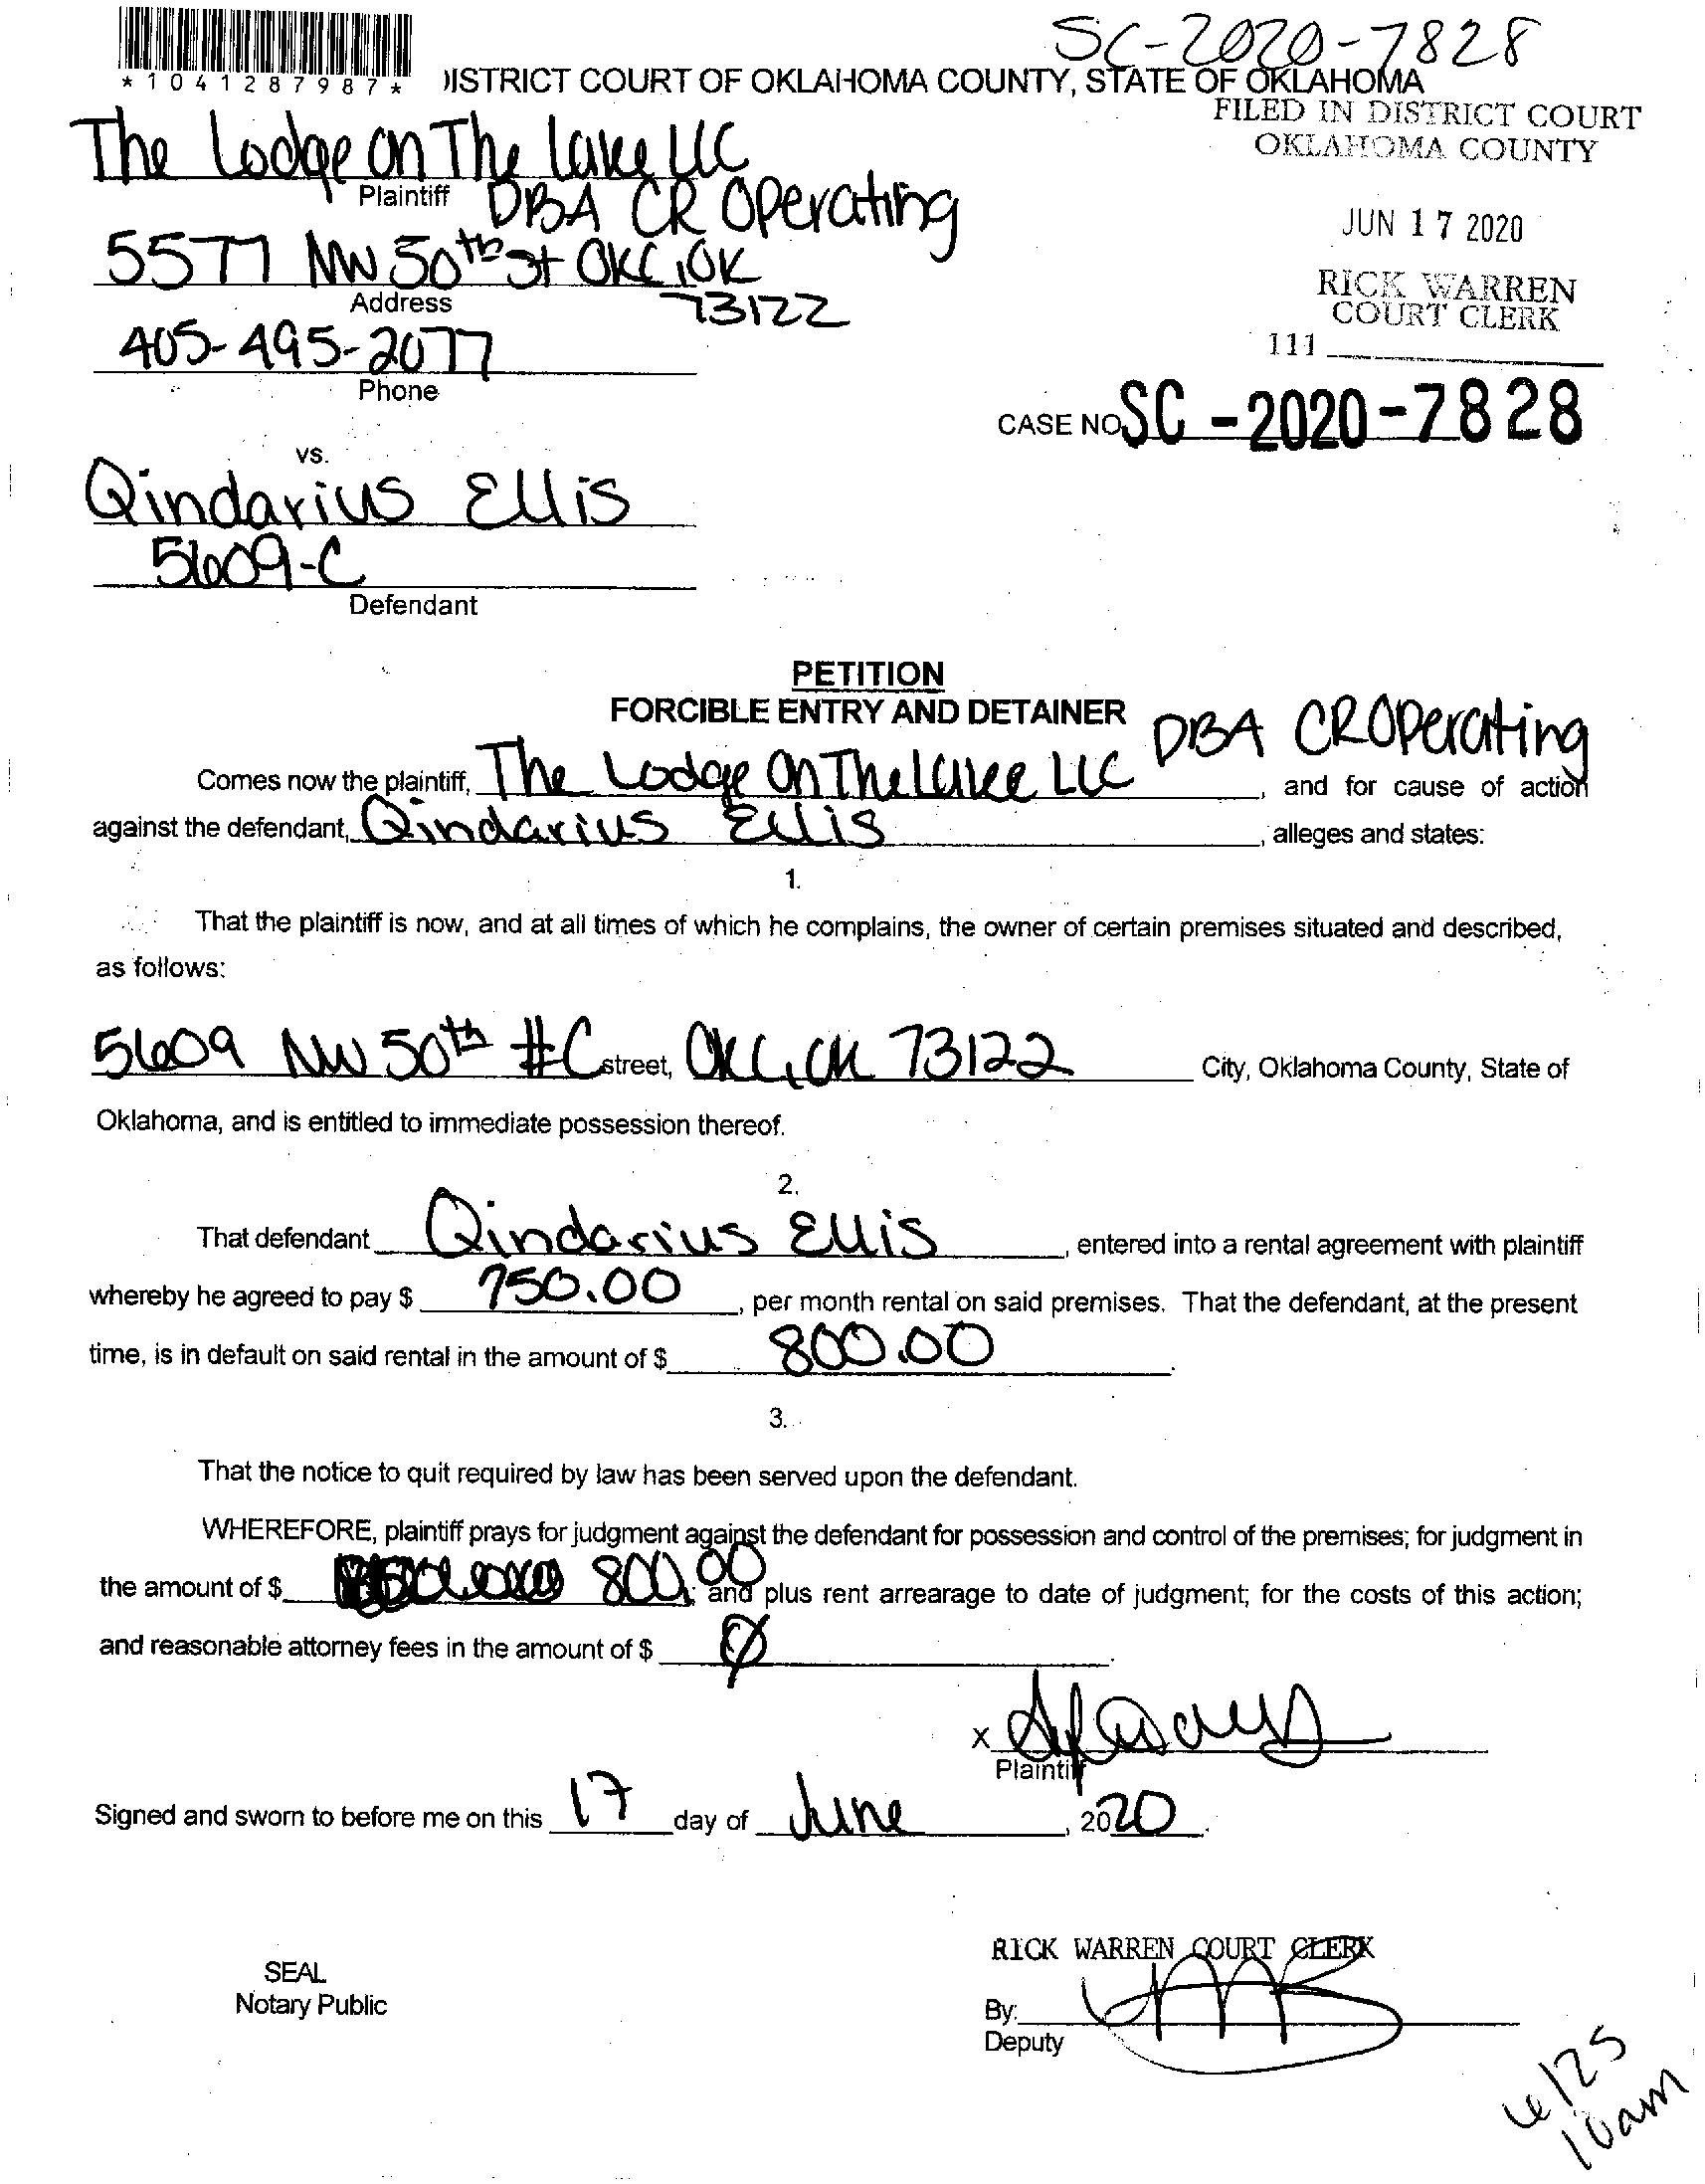 SC-2020-7828
*1041287987*
DISTRICT COURT OF OKLAHOMA COUNTY, STATE OF OKLAHOMA
FILED IN DISTRICT COURT
OKLAHOMA COUNTY
The Lodge on The Lake LLC
Plaintiff
DBA CR Operating
JUN 17 2020
5577 NW 50th St OKC, OK
Address
73122
RICK WARREN
COURT CLERK
405-495-2077
111
Phone
CASE NO. SC-2020-7828
vs.
Qindarius Ellis
5609-C
Defendant
PETITION
FORCIBLE ENTRY AND DETAINER
DBA CR Operating
Comes now the plaintiff, The Lodge On The Lake LLC, and for cause of action
against the defendant, Qindarius Ellis, alleges and states:
1.
That the plaintiff is now, and at all times of which he complains, the owner of certain premises situated and described,
as follows:
5609 NW 50th #C street, OKC, OK 73122 City, Oklahoma County, State of
Oklahoma, and is entitled to immediate possession thereof.
2.
That defendant Qindarius Ellis, entered into a rental agreement with plaintiff
whereby he agreed to pay $ 750.00, per month rental on said premises. That the defendant, at the present
time, is in default on said rental in the amount of $ 800.00.
3.
That the notice to quit required by law has been served upon the defendant.
WHEREFORE, plaintiff prays for judgment against the defendant for possession and control of the premises; for judgment in
the amount of $ 800.00; and plus rent arrearage to date of judgment; for the costs of this action;
and reasonable attorney fees in the amount of $ 0.
X
Plaintiff
Signed and sworn to before me on this 17 day of June, 2020.
RICK WARREN COURT CLERK
SEAL
Notary Public
By:
Deputy
6/25
10am